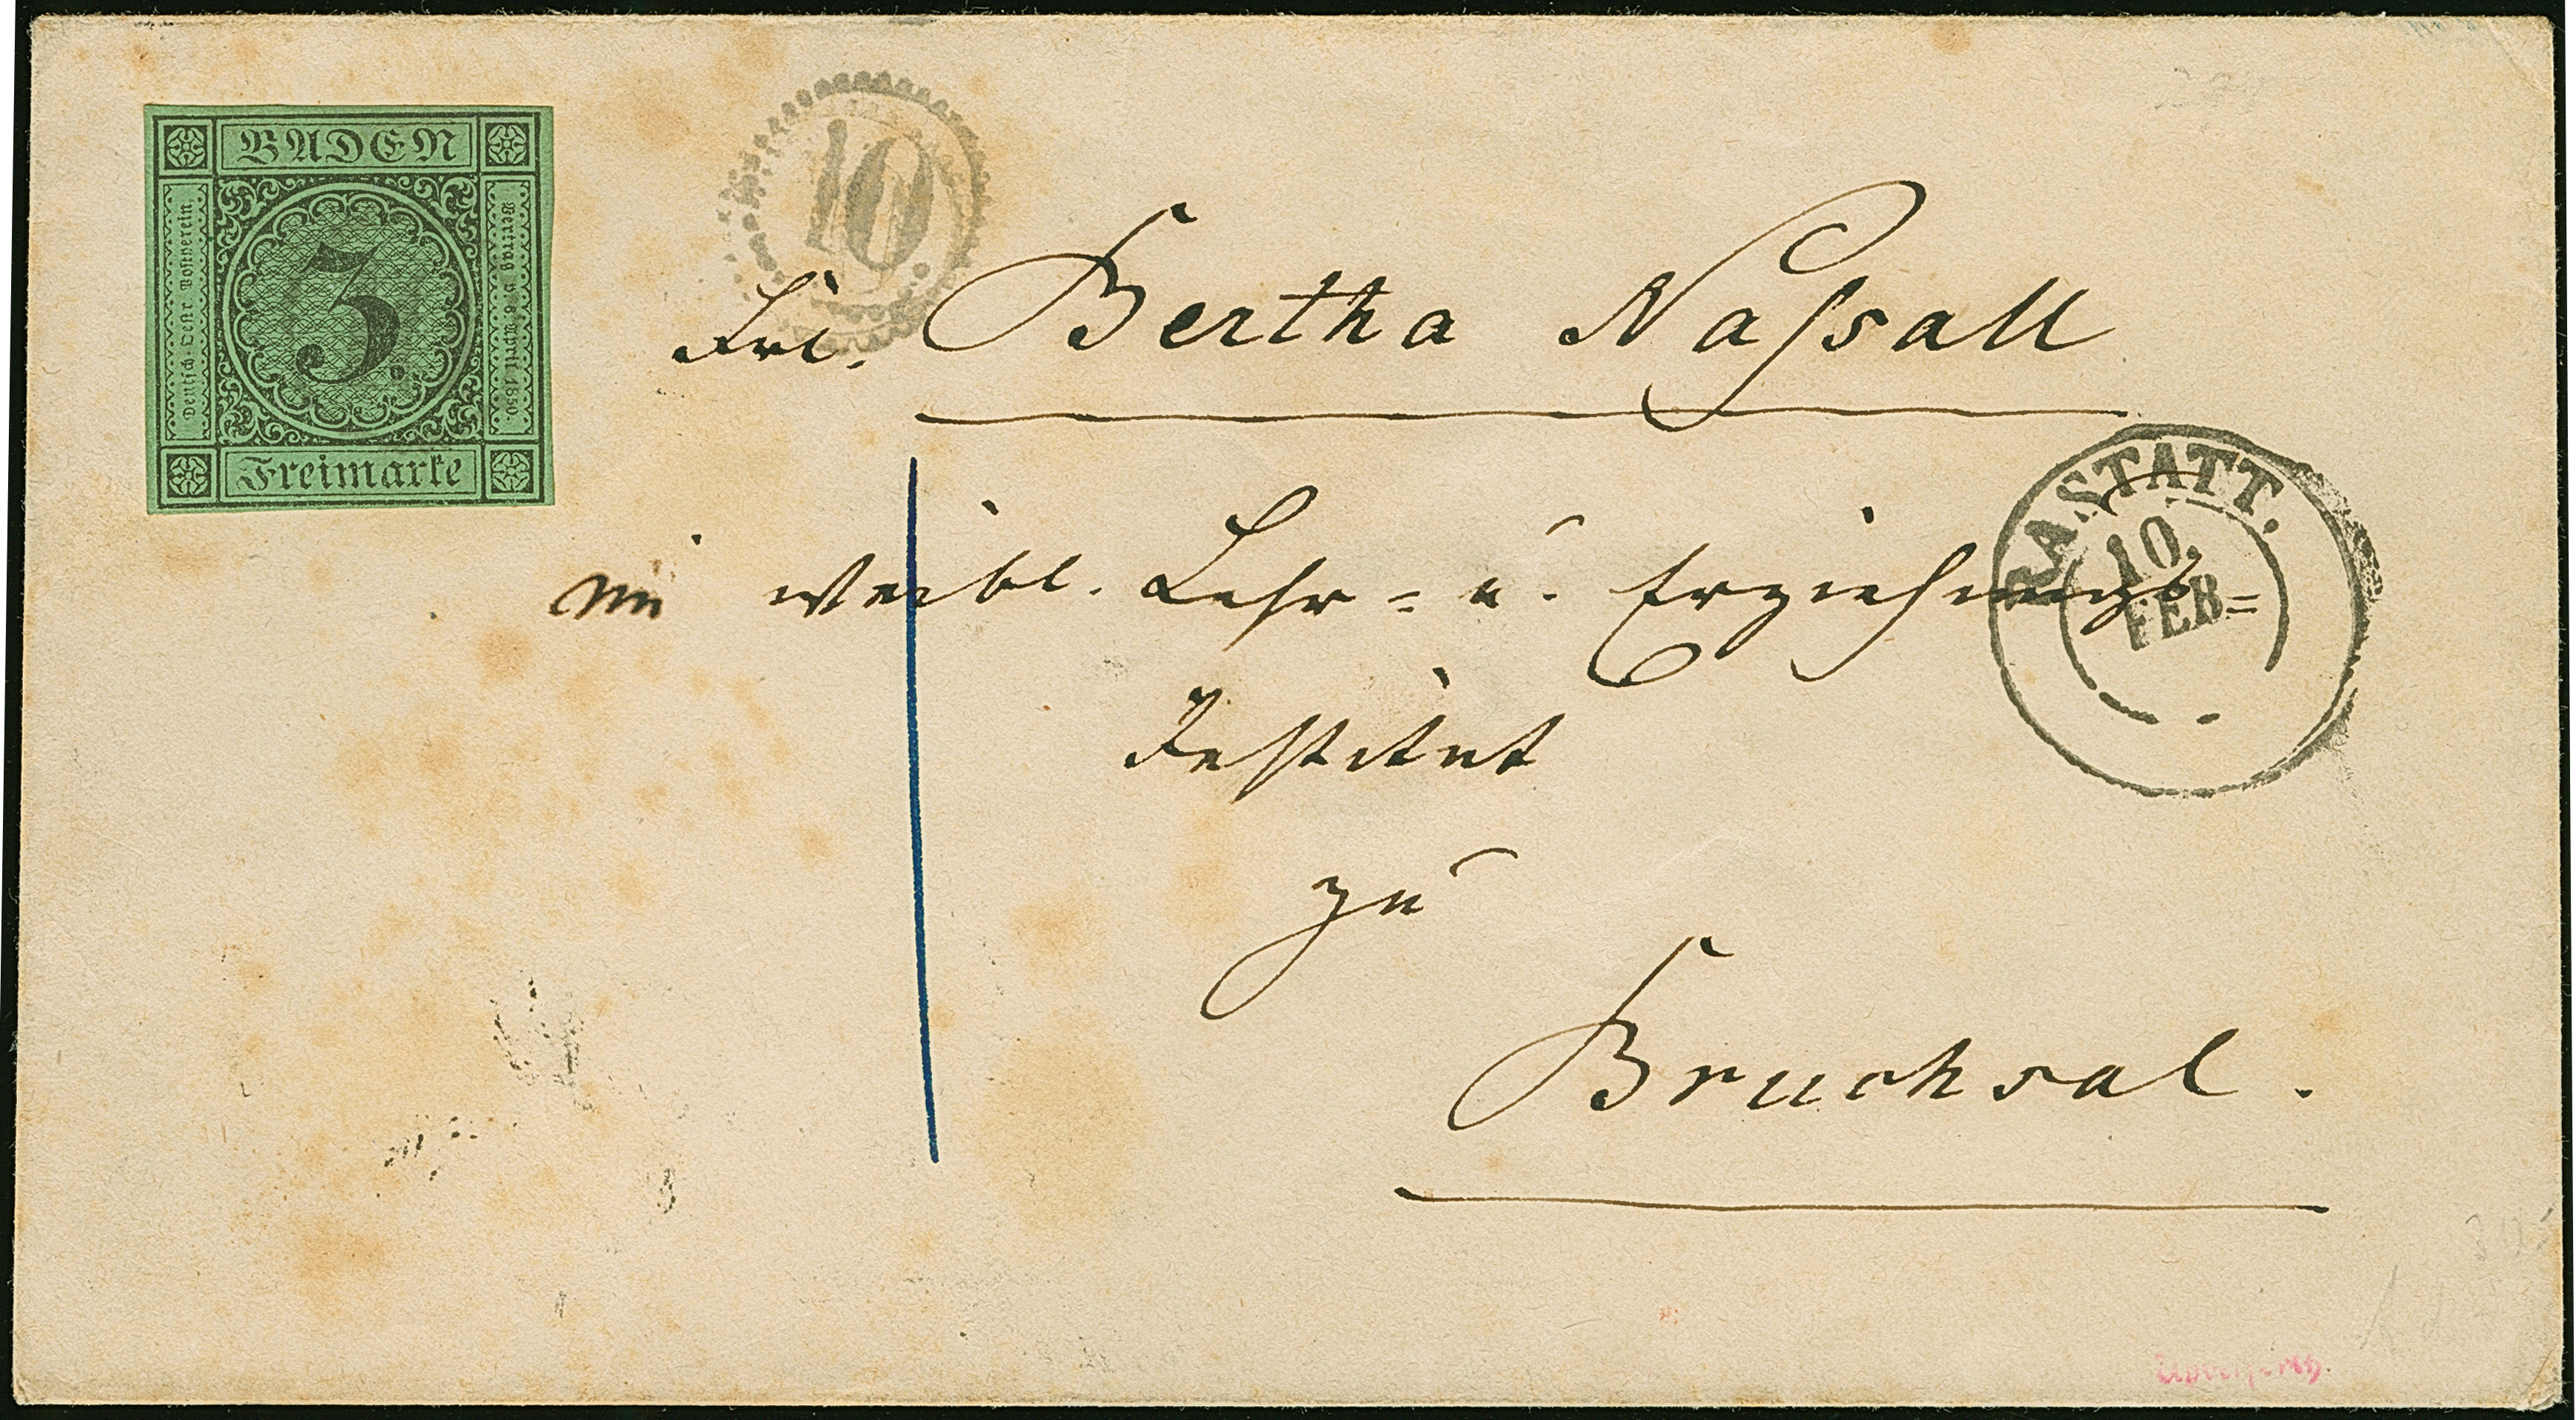 BADEN
Deutsch. Oestr. Postverein
Vertrag v. 6 April 1850
3.
Freimarke
10.
Frl. Bertha Naſsall
im weibl. Lehr- u. Erziehungs=
Institut
zu
Bruchsal.
RASTATT.
10.
FEB.